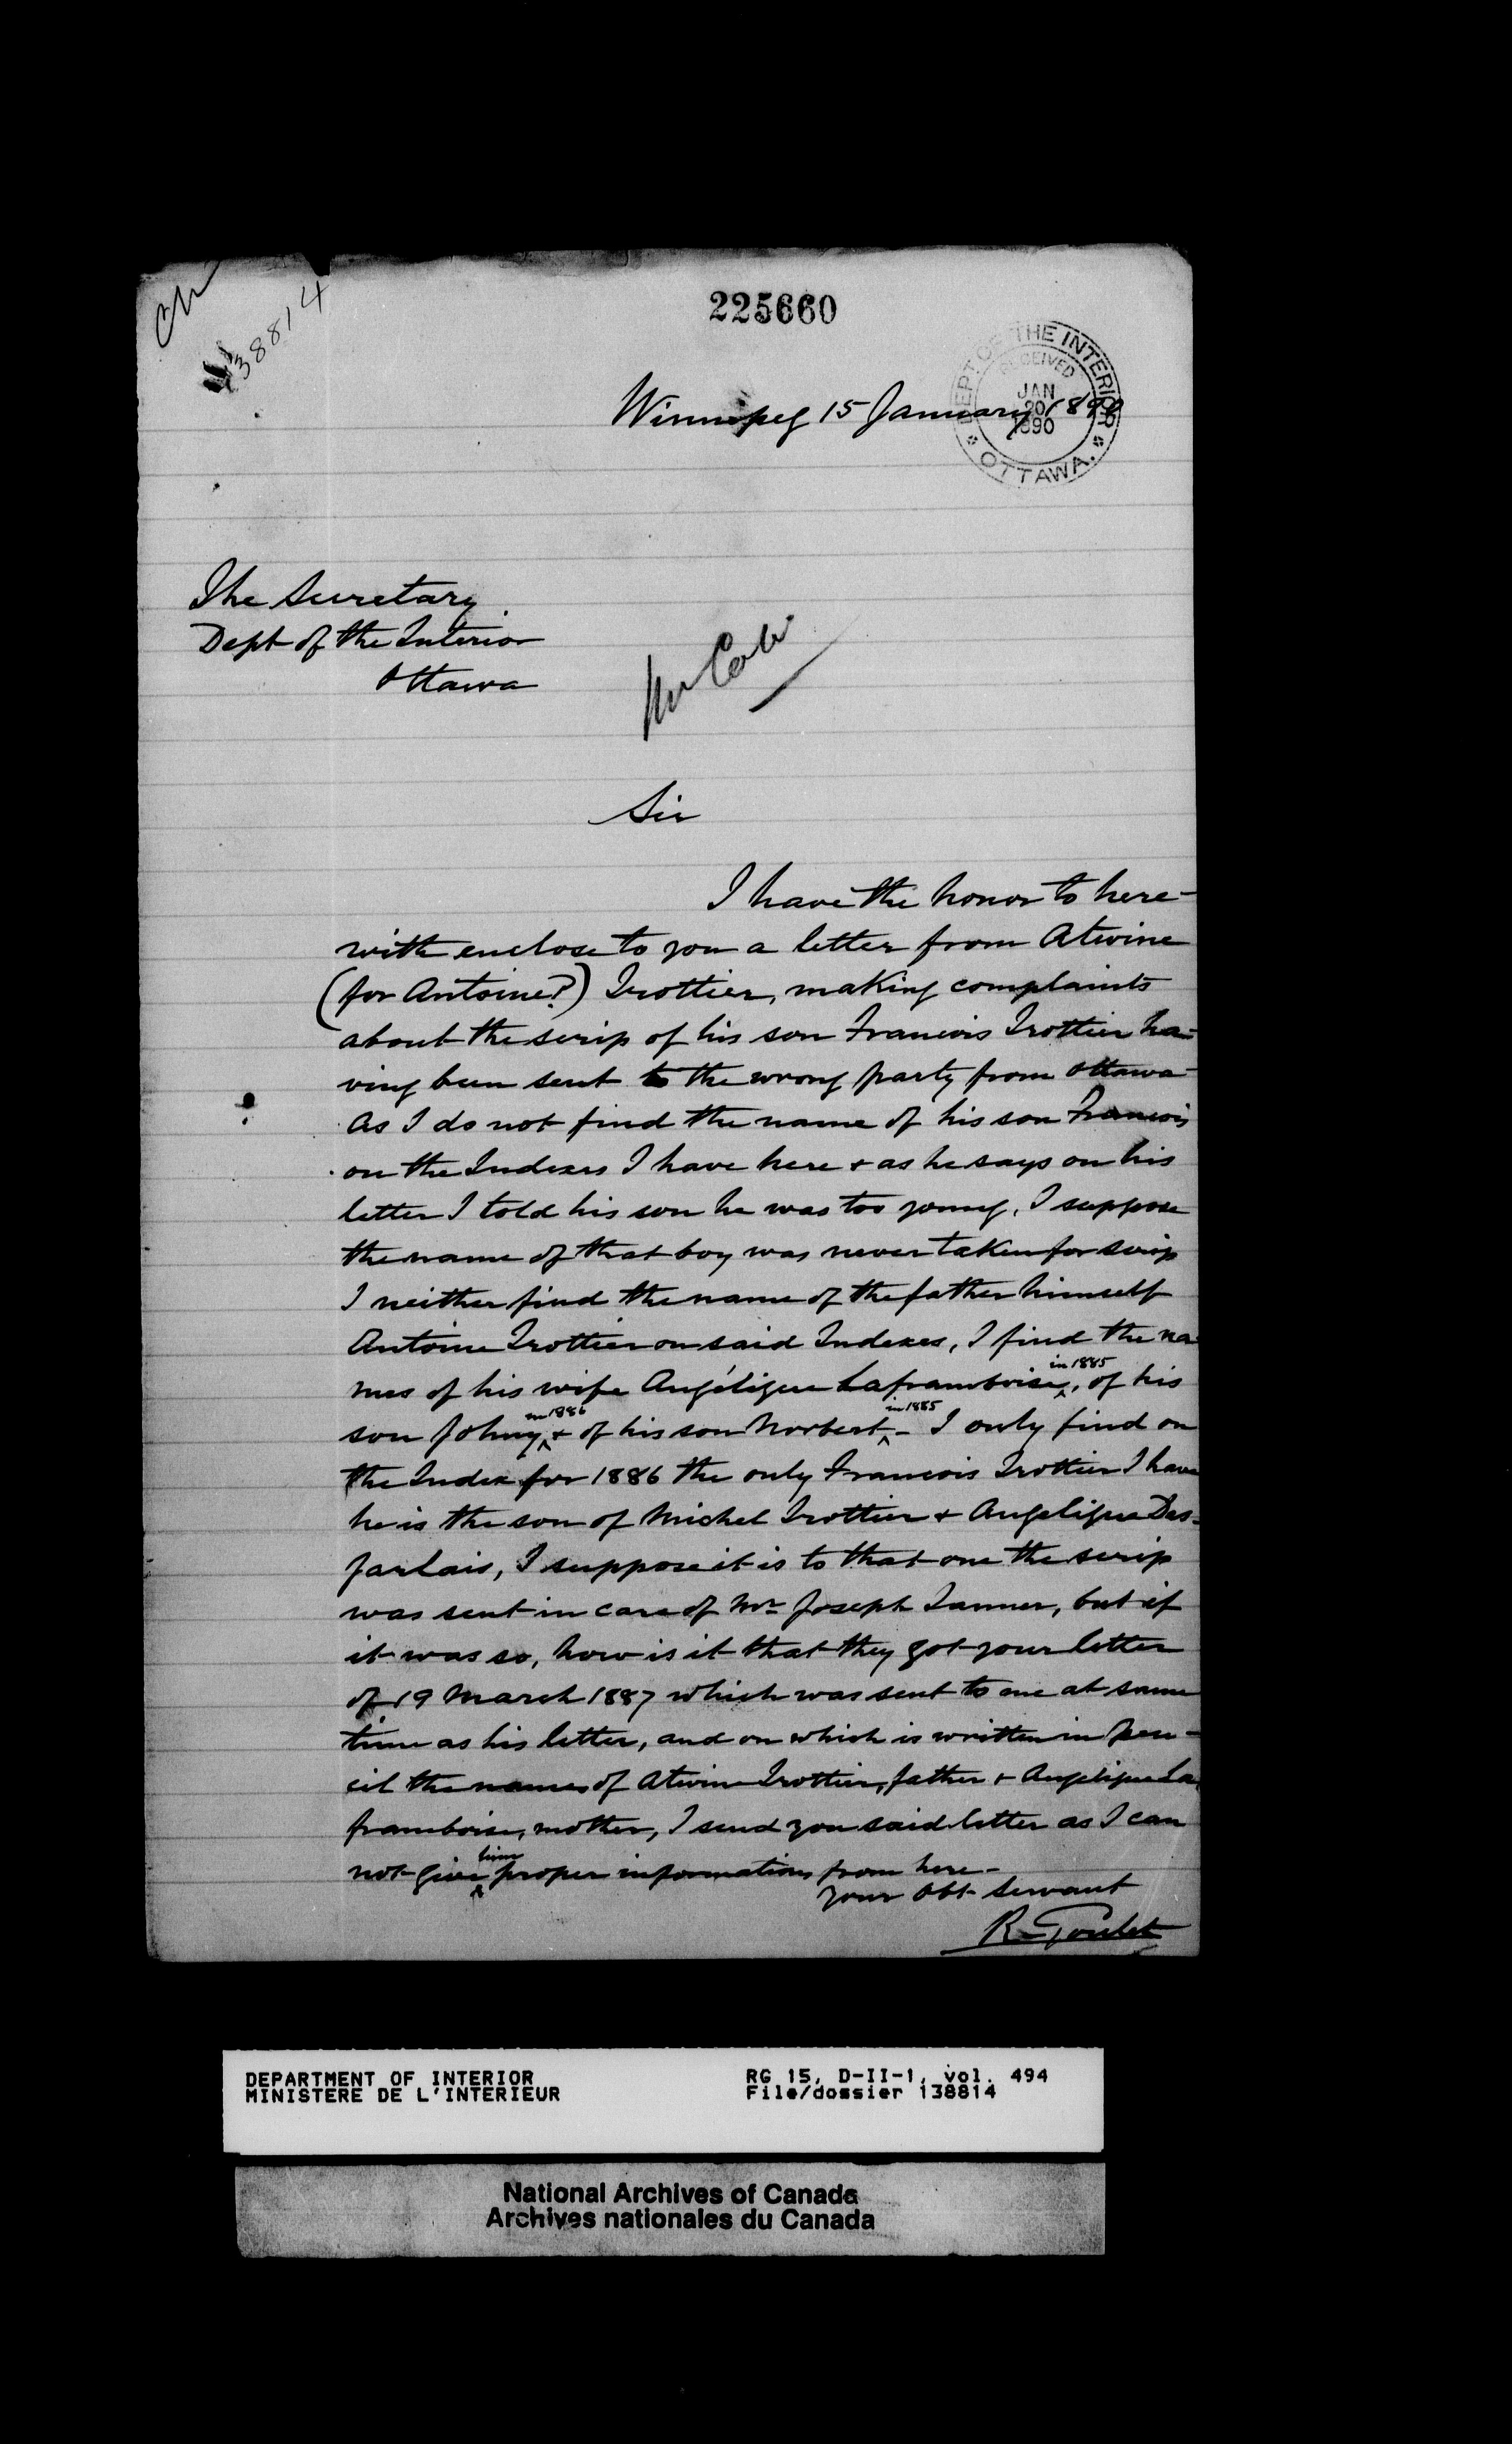 138814
225660
DEPT. OF THE INTERIOR
RECEIVED
JAN
20
1890
OTTAWA.
Winnipeg 15 January 1890
The Secretary
Dept of the Interior
Ottawa
Sir
I have the honor to here-
with enclose to you a letter from Atwine
(for Antoine?) Trottier, making complaints
about the scrip of his son Francois Trottier ha-
ving been sent to the wrong party from Ottawa-
As I do not find the name of his son Francois
on the Indexes I have here & as he says on his
letter I told his son he was too young, I suppose
the name of that boy was never taken for scrip
I neither find the name of the father himself
Antoine Trottier on said Indexes, I find the na-
mes of his wife Angélique Laframboise in 1885, of his
son Johny in 1886 & of his son Norbert in 1885- I only find on
the Index for 1886 the only Francois Trottier I have
he is the son of Michel Trottier & Angelique Des-
jarlais, I suppose it is to that one the scrip
was sent in care of Mr Joseph Tanner, but if
it was so, how is it that they got your letter
of 19 March 1887 which was sent to me at same
time as his letter, and on which is written in pen-
cil the names of Atwine Trottier, father & Angelique La-
framboise, mother, I send you said letter as I can
not give him proper informations from here-
your Obt Servant
R Goulet
DEPARTMENT OF INTERIOR
MINISTERE DE L'INTERIEUR
RG 15, D-II-1, vol. 494
File/dossier 138814
National Archives of Canada
Archives nationales du Canada